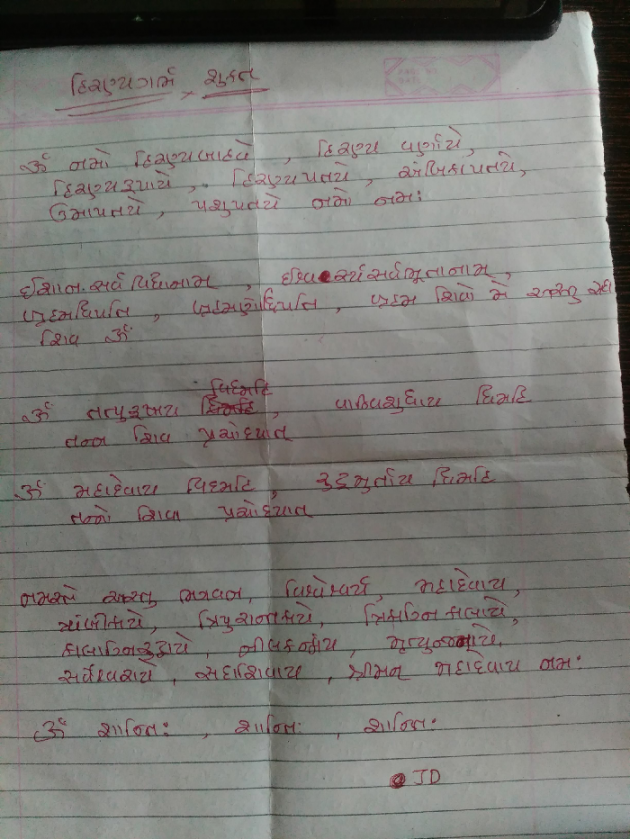 હિરણ્યગર્ભ શુક્ત
ૐ નમો હિરણ્યબાહવે, હિરણ્ય વર્ણાયે,
હિરણ્યરૂપાયે, હિરણ્યપતયે, અંબિકાપતયે,
ઉમાપતયે, પશુપતયે નમો નમઃ
ઈશાન સર્વ વિદ્યાનામ, ઈશ્વિ સર્વભૂતાનામ,
બ્રહ્માધિપતિ, બ્રહ્મણોધિપતિ, બ્રહ્મ શિવો મે અસ્તુ સદા
શિવ ૐ
વિદમહિ
ૐ તત્પુરુષાય, વાગવિશુધાય ધિમહિ
તન્ન શિવ પ્રચોદયાત
ૐ મહાદેવાય વિદમહિ, રુદ્રમુર્તાય ધિમહિ
તન્નો શિવ પ્રચોદયાત
નમસ્તે અસ્તુ ભગવન, વિશ્વેશ્વર્ય, મહાદેવાય,
ત્ર્યંબકાયે, ત્રિપુરાન્તકાયે, ત્રિકાગ્નિકાલાયે,
કાલાગ્નિરુદ્રાયે, નીલકન્ઠાય, મૃત્યુન્જાયે,
સર્વેશ્વરાયે, સદાશિવાય, શ્રીમન મહાદેવાય નમઃ
ૐ શાન્તિઃ, શાન્તિઃ, શાન્તિઃ
JD